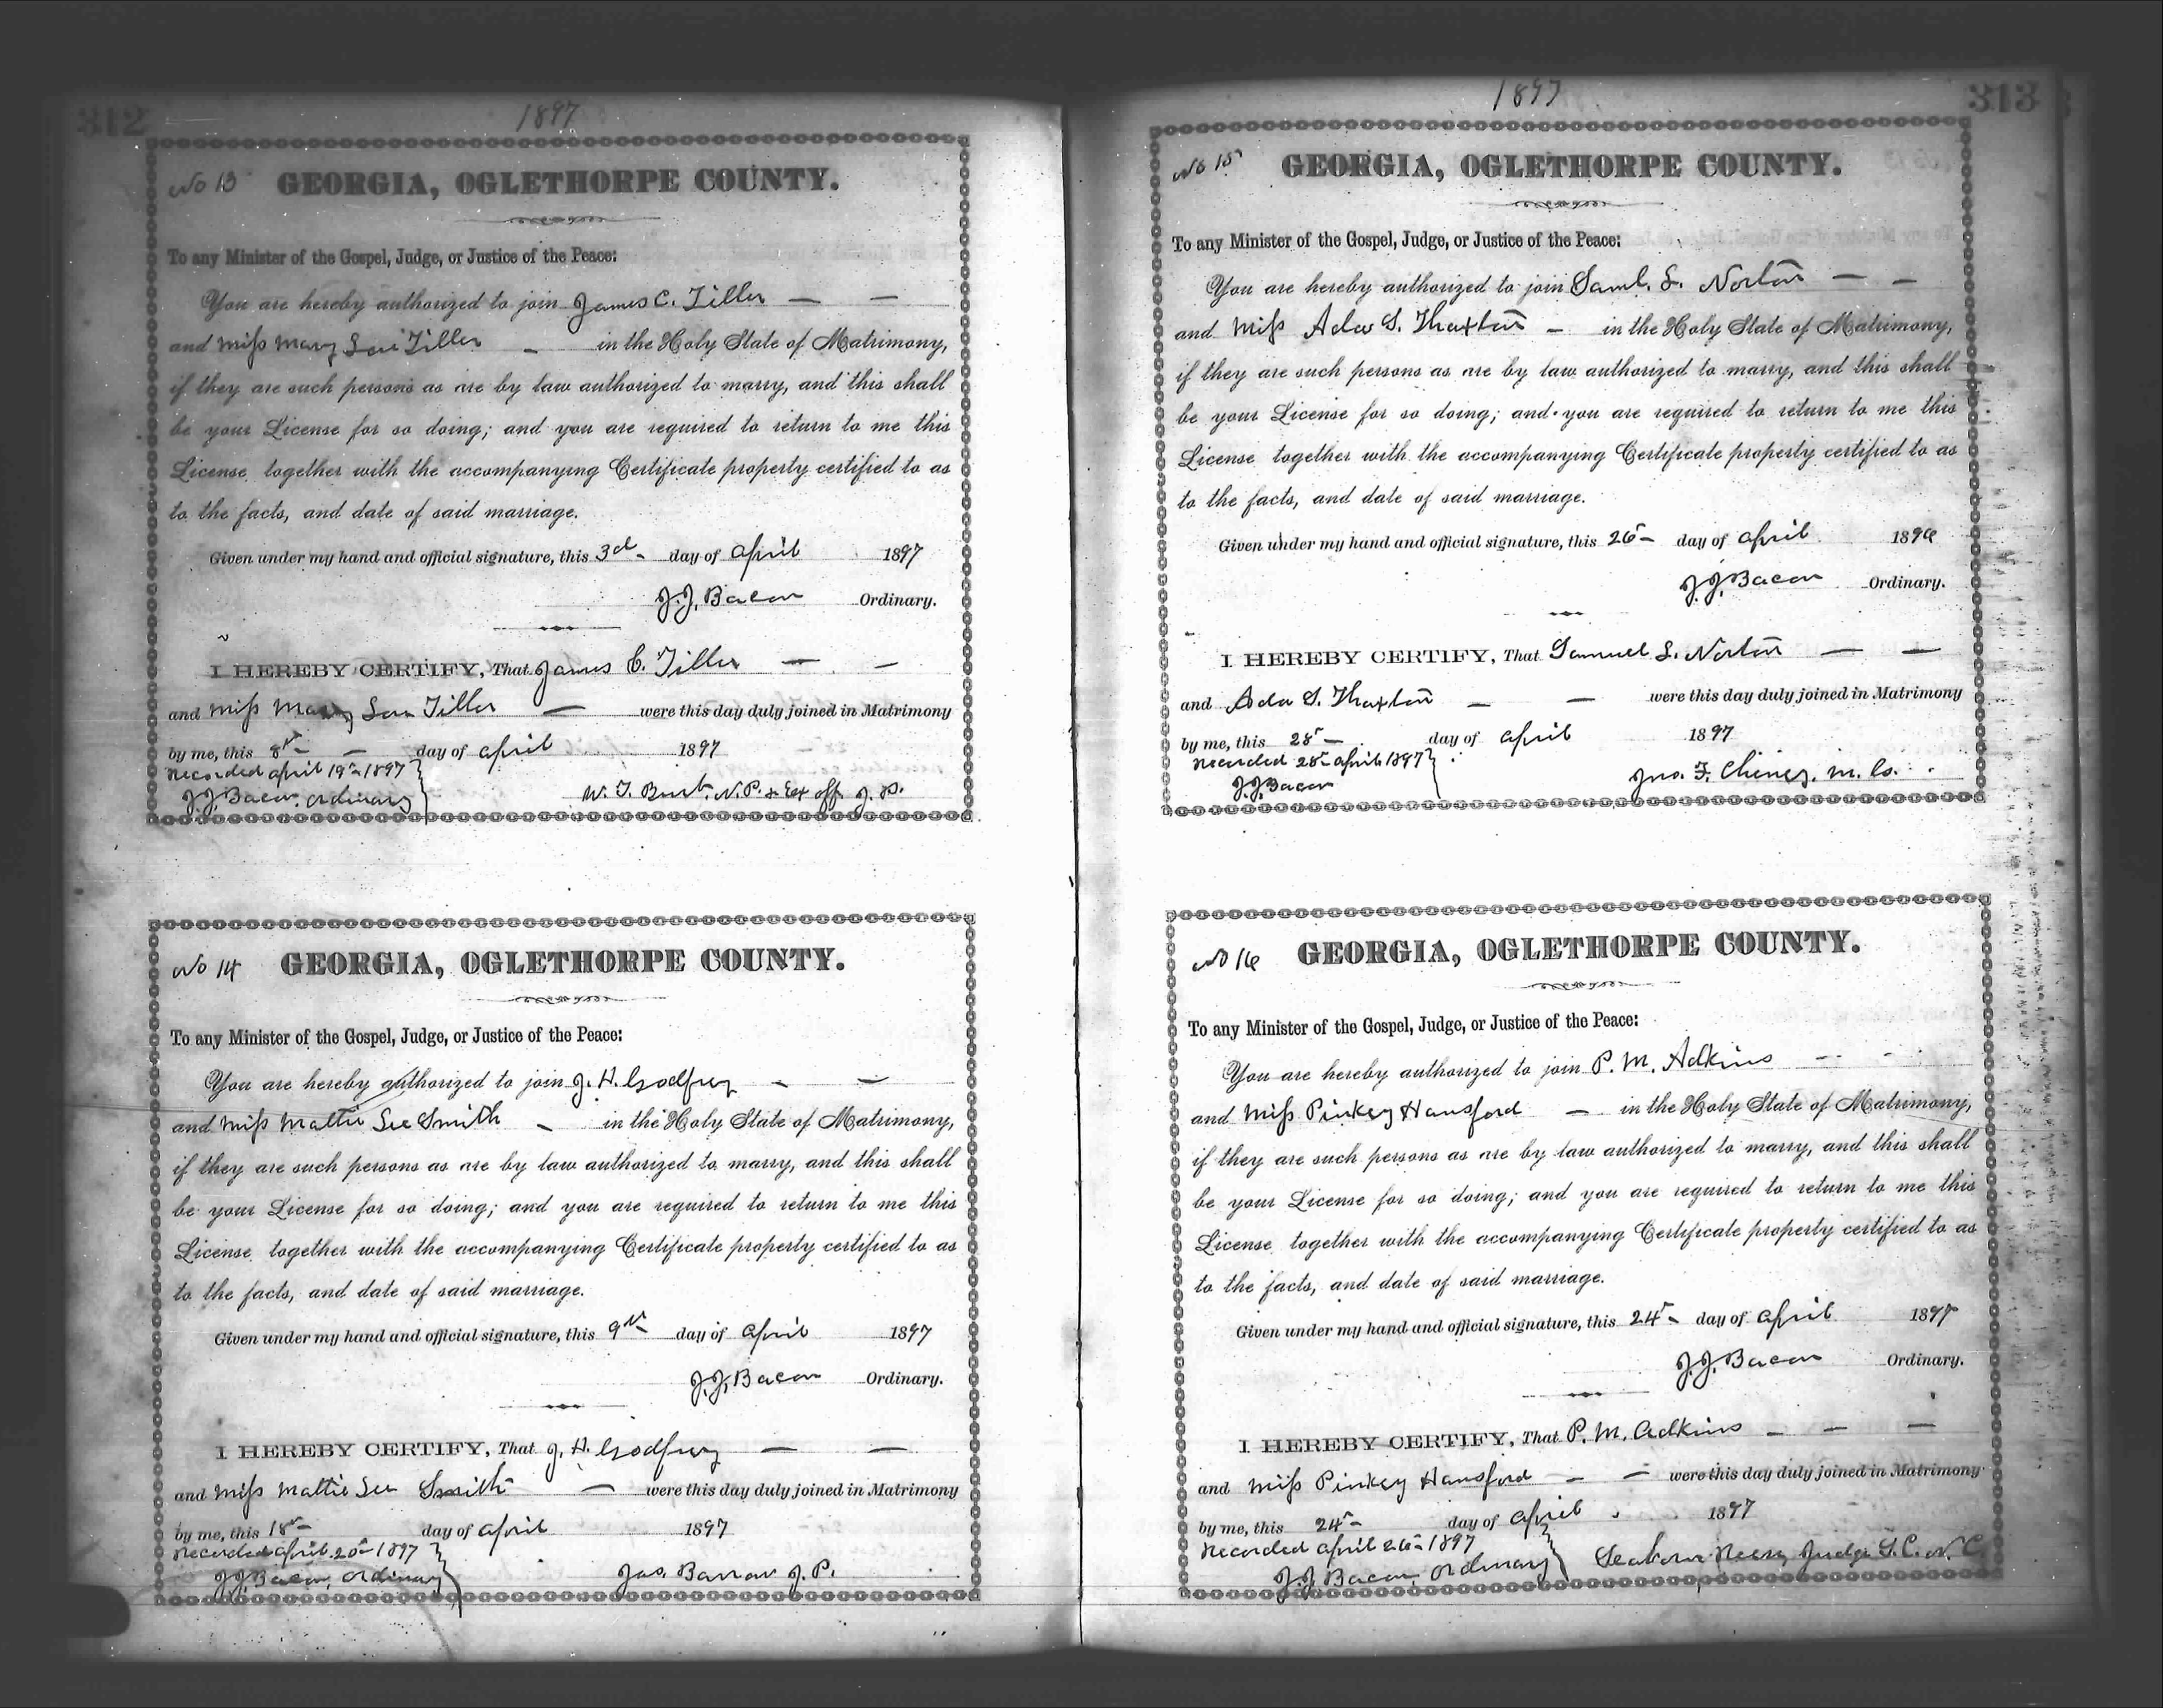 312
1897
No 13 GEORGIA, OGLETHORPE COUNTY.
To any Minister of the Gospel, Judge, or Justice of the Peace:
You are hereby authorized to join James C. Tiller
and Miss Mary Lou Tiller in the Holy State of Matrimony,
if they are such persons as are by law authorized to marry, and this shall
be your License for so doing; and you are required to return to me this
License together with the accompanying Certificate property certified to as
to the facts, and date of said marriage.
Given under my hand and official signature, this 3d day of April 1897
J.J. Bacon Ordinary.
I HEREBY CERTIFY, That James C. Tiller
and Miss Mary Lou Tiller were this day duly joined in Matrimony
by me, this 8th day of April 1897
Recorded April 19th 1897
J.J. Bacon, Ordinary W. T. Burt, N.P. & Ex off J. P.
No 14 GEORGIA, OGLETHORPE COUNTY.
To any Minister of the Gospel, Judge, or Justice of the Peace:
You are hereby authorized to join J. H. Godfrey
and Miss Mattie Lee Smith in the Holy State of Matrimony,
if they are such persons as are by law authorized to marry, and this shall
be your License for so doing; and you are required to return to me this
License together with the accompanying Certificate property certified to as
to the facts, and date of said marriage.
Given under my hand and official signature, this 9th day of April 1897
J.J. Bacon Ordinary.
I HEREBY CERTIFY, That J. H. Godfrey
and Miss Mattie Lee Smith were this day duly joined in Matrimony
by me, this 18th day of April 1897
Recorded April 20th 1897
J.J. Bacon, Ordinary Jas. Barrow J. P.
1897
313
No 15 GEORGIA, OGLETHORPE COUNTY.
To any Minister of the Gospel, Judge, or Justice of the Peace:
You are hereby authorized to join Saml. L. Norton
and Miss Ada S. Thaxton in the Holy State of Matrimony,
if they are such persons as are by law authorized to marry, and this shall
be your License for so doing; and you are required to return to me this
License together with the accompanying Certificate property certified to as
to the facts, and date of said marriage.
Given under my hand and official signature, this 26 day of April 189
J.J. Bacon Ordinary.
I HEREBY CERTIFY, That Samuel L. Norton
and Ada S. Thaxton were this day duly joined in Matrimony
by me, this 28 day of April 1897
Recorded 28 April 1897
J.J. Bacon Jno. F. Cheney, M. G.
No 16 GEORGIA, OGLETHORPE COUNTY.
To any Minister of the Gospel, Judge, or Justice of the Peace:
You are hereby authorized to join P. M. Adkins
and Miss Pinkey Hansford in the Holy State of Matrimony,
if they are such persons as are by law authorized to marry, and this shall
be your License for so doing; and you are required to return to me this
License together with the accompanying Certificate property certified to as
to the facts, and date of said marriage.
Given under my hand and official signature, this 24 day of April 1897
J.J. Bacon Ordinary.
I HEREBY CERTIFY, That P. M. Adkins
and Miss Pinkey Hansford were this day duly joined in Matrimony
by me, this 24 day of April 1897
Recorded April 26 1897
J.J. Bacon, Ordinary Seaborn Reese, Judge S. C. N. C.